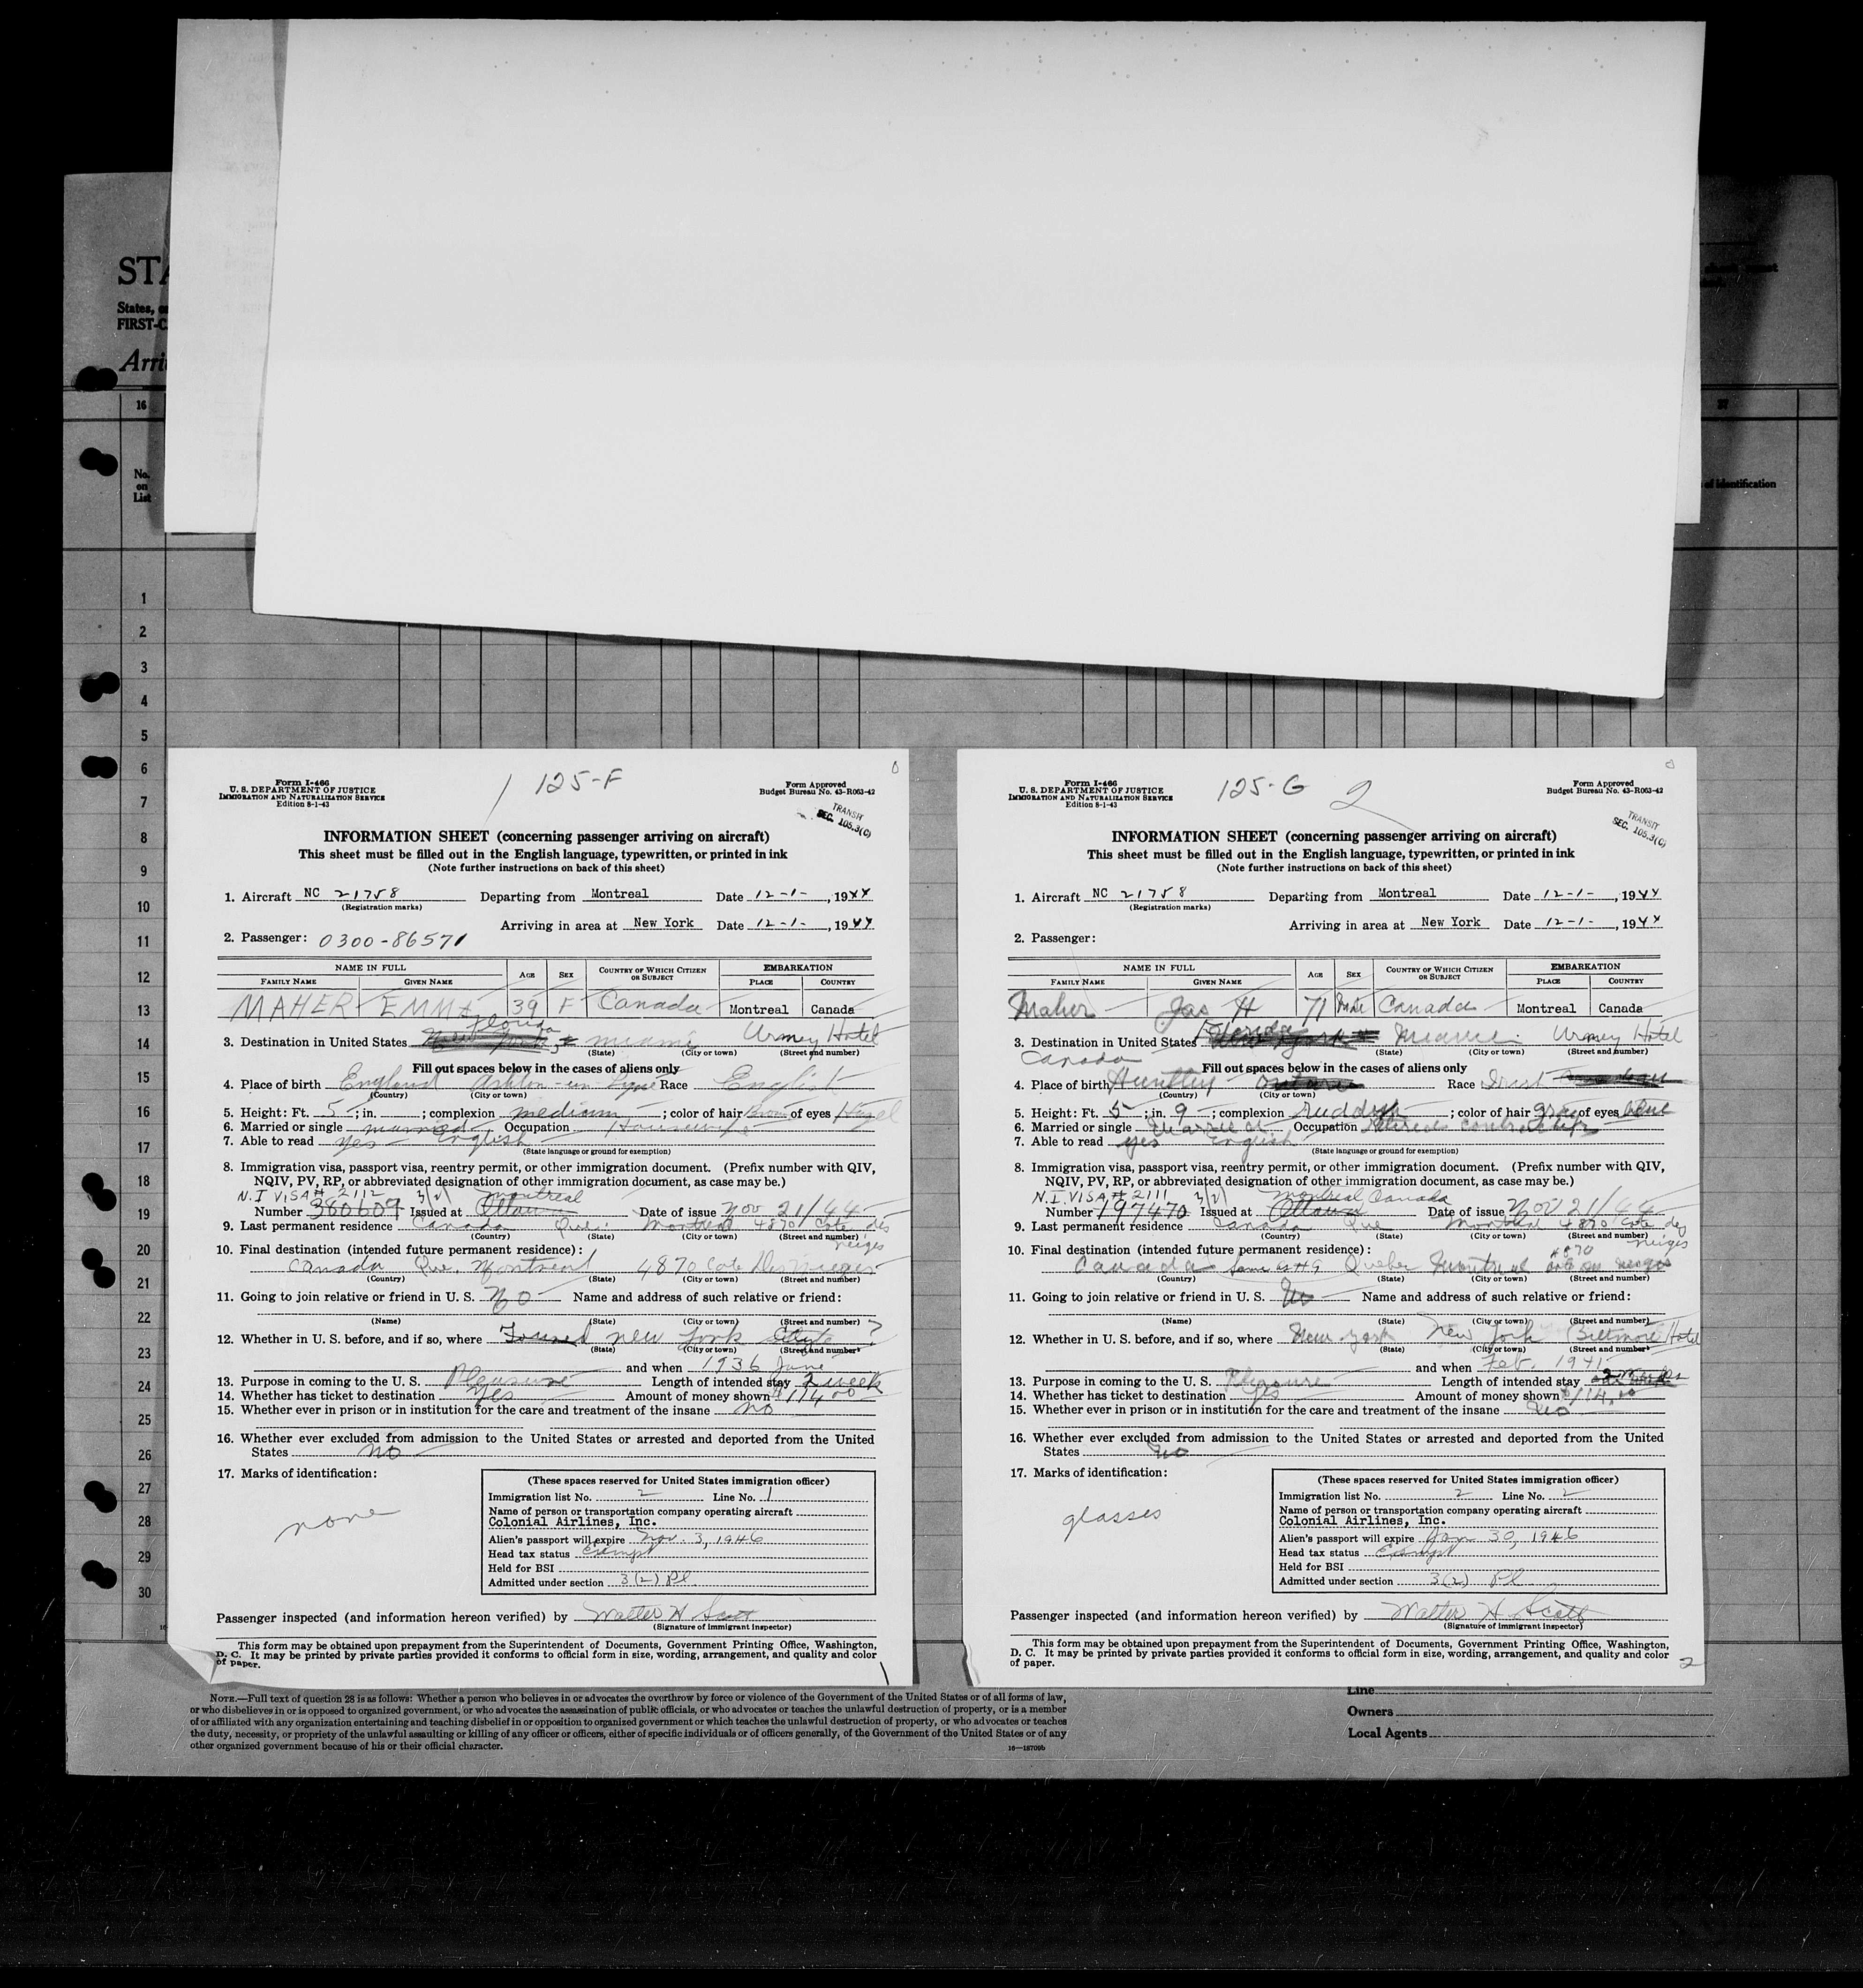 STA
States, 
FIRST-C
Arri
16
27
No.
on
List
of identification
1
2
3
4
5
6
7
8
9
10
11
12
13
14
15
16
17
18
19
20
21
22
23
24
25
26
27
28
29
30
Form I-466
U. S. DEPARTMENT OF JUSTICE
IMMIGRATION AND NATURALIZATION SERVICE
Edition 8-1-43
1 125-F
Form Approved
Budget Bureau No. 43-R063-42
TRANSIT
SEC. 105.3(C)
INFORMATION SHEET (concerning passenger arriving on aircraft)
This sheet must be filled out in the English language, typewritten, or printed in ink
(Note further instructions on back of this sheet)
1. Aircraft NC 21758 Departing from Montreal Date 12-1-, 1944
(Registration marks)
Arriving in area at New York Date 12-1-, 1944
2. Passenger: 0300-86571
NAME IN FULL AGE SEX COUNTRY OF WHICH CITIZEN OR SUBJECT EMBARKATION
FAMILY NAME GIVEN NAME PLACE COUNTRY
MAHER EMMA 39 F Canada Montreal Canada
3. Destination in United States Florida Miami Urmey Hotel
(State) (City or town) (Street and number)
Fill out spaces below in the cases of aliens only
4. Place of birth England Ashton-un-Lyne Race English
(Country) (City or town)
5. Height: Ft. 5; in. ; complexion medium; color of hair Brown of eyes Hazel
6. Married or single married Occupation Housewife
7. Able to read yes English
(State language or ground for exemption)
8. Immigration visa, passport visa, reentry permit, or other immigration document. (Prefix number with QIV,
NQIV, PV, RP, or abbreviated designation of other immigration document, as case may be.)
N.I VISA # 2112 3(2) Montreal
Number 380607 Issued at Ottawa Date of issue Nov 21/44
9. Last permanent residence Canada Que. Montreal 4870 Cote des Neiges
(Country) (State) (City or town) (Street and number)
10. Final destination (intended future permanent residence):
Canada Que. Montreal 4870 Cote Des Neiges
(Country) (State) (City or town) (Street and number)
11. Going to join relative or friend in U. S. No Name and address of such relative or friend:
(Name) (State) (City or town) (Street and number)
12. Whether in U. S. before, and if so, where new York City ?
(State) (City or town) (Street and number)
and when 1936 June
13. Purpose in coming to the U. S. Pleasure Length of intended stay 2 week
14. Whether has ticket to destination Yes Amount of money shown $114.00
15. Whether ever in prison or in institution for the care and treatment of the insane no
16. Whether ever excluded from admission to the United States or arrested and deported from the United
States no
17. Marks of identification:
none
(These spaces reserved for United States immigration officer)
Immigration list No. 2 Line No. 1
Name of person or transportation company operating aircraft
Colonial Airlines, Inc.
Alien's passport will expire Nov. 3, 1946
Head tax status Exempt
Held for BSI
Admitted under section 3(2) Pl
Passenger inspected (and information hereon verified) by Walter H Scott
(Signature of immigrant inspector)
This form may be obtained upon prepayment from the Superintendent of Documents, Government Printing Office, Washington,
D. C. It may be printed by private parties provided it conforms to official form in size, wording, arrangement, and quality and color
of paper.
Form I-466
U. S. DEPARTMENT OF JUSTICE
IMMIGRATION AND NATURALIZATION SERVICE
Edition 8-1-43
125-G 2
Form Approved
Budget Bureau No. 43-R063-42
TRANSIT
SEC. 105.3(C)
INFORMATION SHEET (concerning passenger arriving on aircraft)
This sheet must be filled out in the English language, typewritten, or printed in ink
(Note further instructions on back of this sheet)
1. Aircraft NC 21758 Departing from Montreal Date 12-1-, 1944
(Registration marks)
Arriving in area at New York Date 12-1-, 1944
2. Passenger:
NAME IN FULL AGE SEX COUNTRY OF WHICH CITIZEN OR SUBJECT EMBARKATION
FAMILY NAME GIVEN NAME PLACE COUNTRY
Maher Jas H 71 Male Canada Montreal Canada
3. Destination in United States Florida Miami Urmey Hotel
(State) (City or town) (Street and number)
Canada
Fill out spaces below in the cases of aliens only
4. Place of birth Huntley Ontario Race Irish
(Country) (City or town)
5. Height: Ft. 5; in. 9; complexion ruddy; color of hair gray of eyes blue
6. Married or single Married Occupation Retired contractor
7. Able to read yes English
(State language or ground for exemption)
8. Immigration visa, passport visa, reentry permit, or other immigration document. (Prefix number with QIV,
NQIV, PV, RP, or abbreviated designation of other immigration document, as case may be.)
N.I VISA # 2111 3(2) Montreal Canada
Number 197470 Issued at Ottawa Date of issue Nov 21/44
9. Last permanent residence Canada Que Montreal 4870 Cote des Neiges
(Country) (State) (City or town) (Street and number)
10. Final destination (intended future permanent residence):
Canada Same as #9 Quebec Montreal 4870 Cote des Neiges
(Country) (State) (City or town) (Street and number)
11. Going to join relative or friend in U. S. No Name and address of such relative or friend:
(Name) (State) (City or town) (Street and number)
12. Whether in U. S. before, and if so, where New York New York Biltmore Hotel
(State) (City or town) (Street and number)
and when Feb. 1941
13. Purpose in coming to the U. S. Pleasure Length of intended stay
14. Whether has ticket to destination yes Amount of money shown $114.00
15. Whether ever in prison or in institution for the care and treatment of the insane no
16. Whether ever excluded from admission to the United States or arrested and deported from the United
States no
17. Marks of identification:
glasses
(These spaces reserved for United States immigration officer)
Immigration list No. 2 Line No. 2
Name of person or transportation company operating aircraft
Colonial Airlines, Inc.
Alien's passport will expire Jan 30, 1946
Head tax status Exempt
Held for BSI
Admitted under section 3(2) Pl
Passenger inspected (and information hereon verified) by Walter H Scott
(Signature of immigrant inspector)
This form may be obtained upon prepayment from the Superintendent of Documents, Government Printing Office, Washington,
D. C. It may be printed by private parties provided it conforms to official form in size, wording, arrangement, and quality and color
of paper.
2
NOTE.—Full text of question 28 is as follows: Whether a person who believes in or advocates the overthrow by force or violence of the Government of the United States or of all forms of law,
or who disbelieves in or is opposed to organized government, or who advocates the assassination of public officials, or who advocates or teaches the unlawful destruction of property, or is a member
of or affiliated with any organization entertaining and teaching disbelief in or opposition to organized government or which teaches the unlawful destruction of property, or who advocates or teaches
the duty, necessity, or propriety of the unlawful assaulting or killing of any officer or officers, either of specific individuals or of officers generally, of the Government of the United States or of any
other organized government because of his or their official character.
16—18709b
Line
Owners
Local Agents